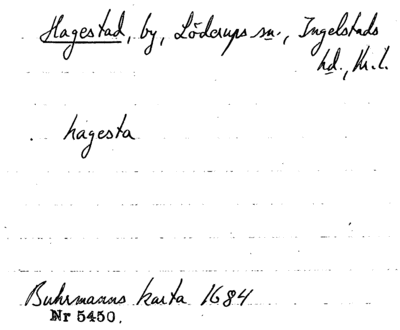 Hagestad, by, Löderups sn., Ingelstads
hd., Kr. l.
hagesta
Buhrmanns karta 1684
Nr 5450.